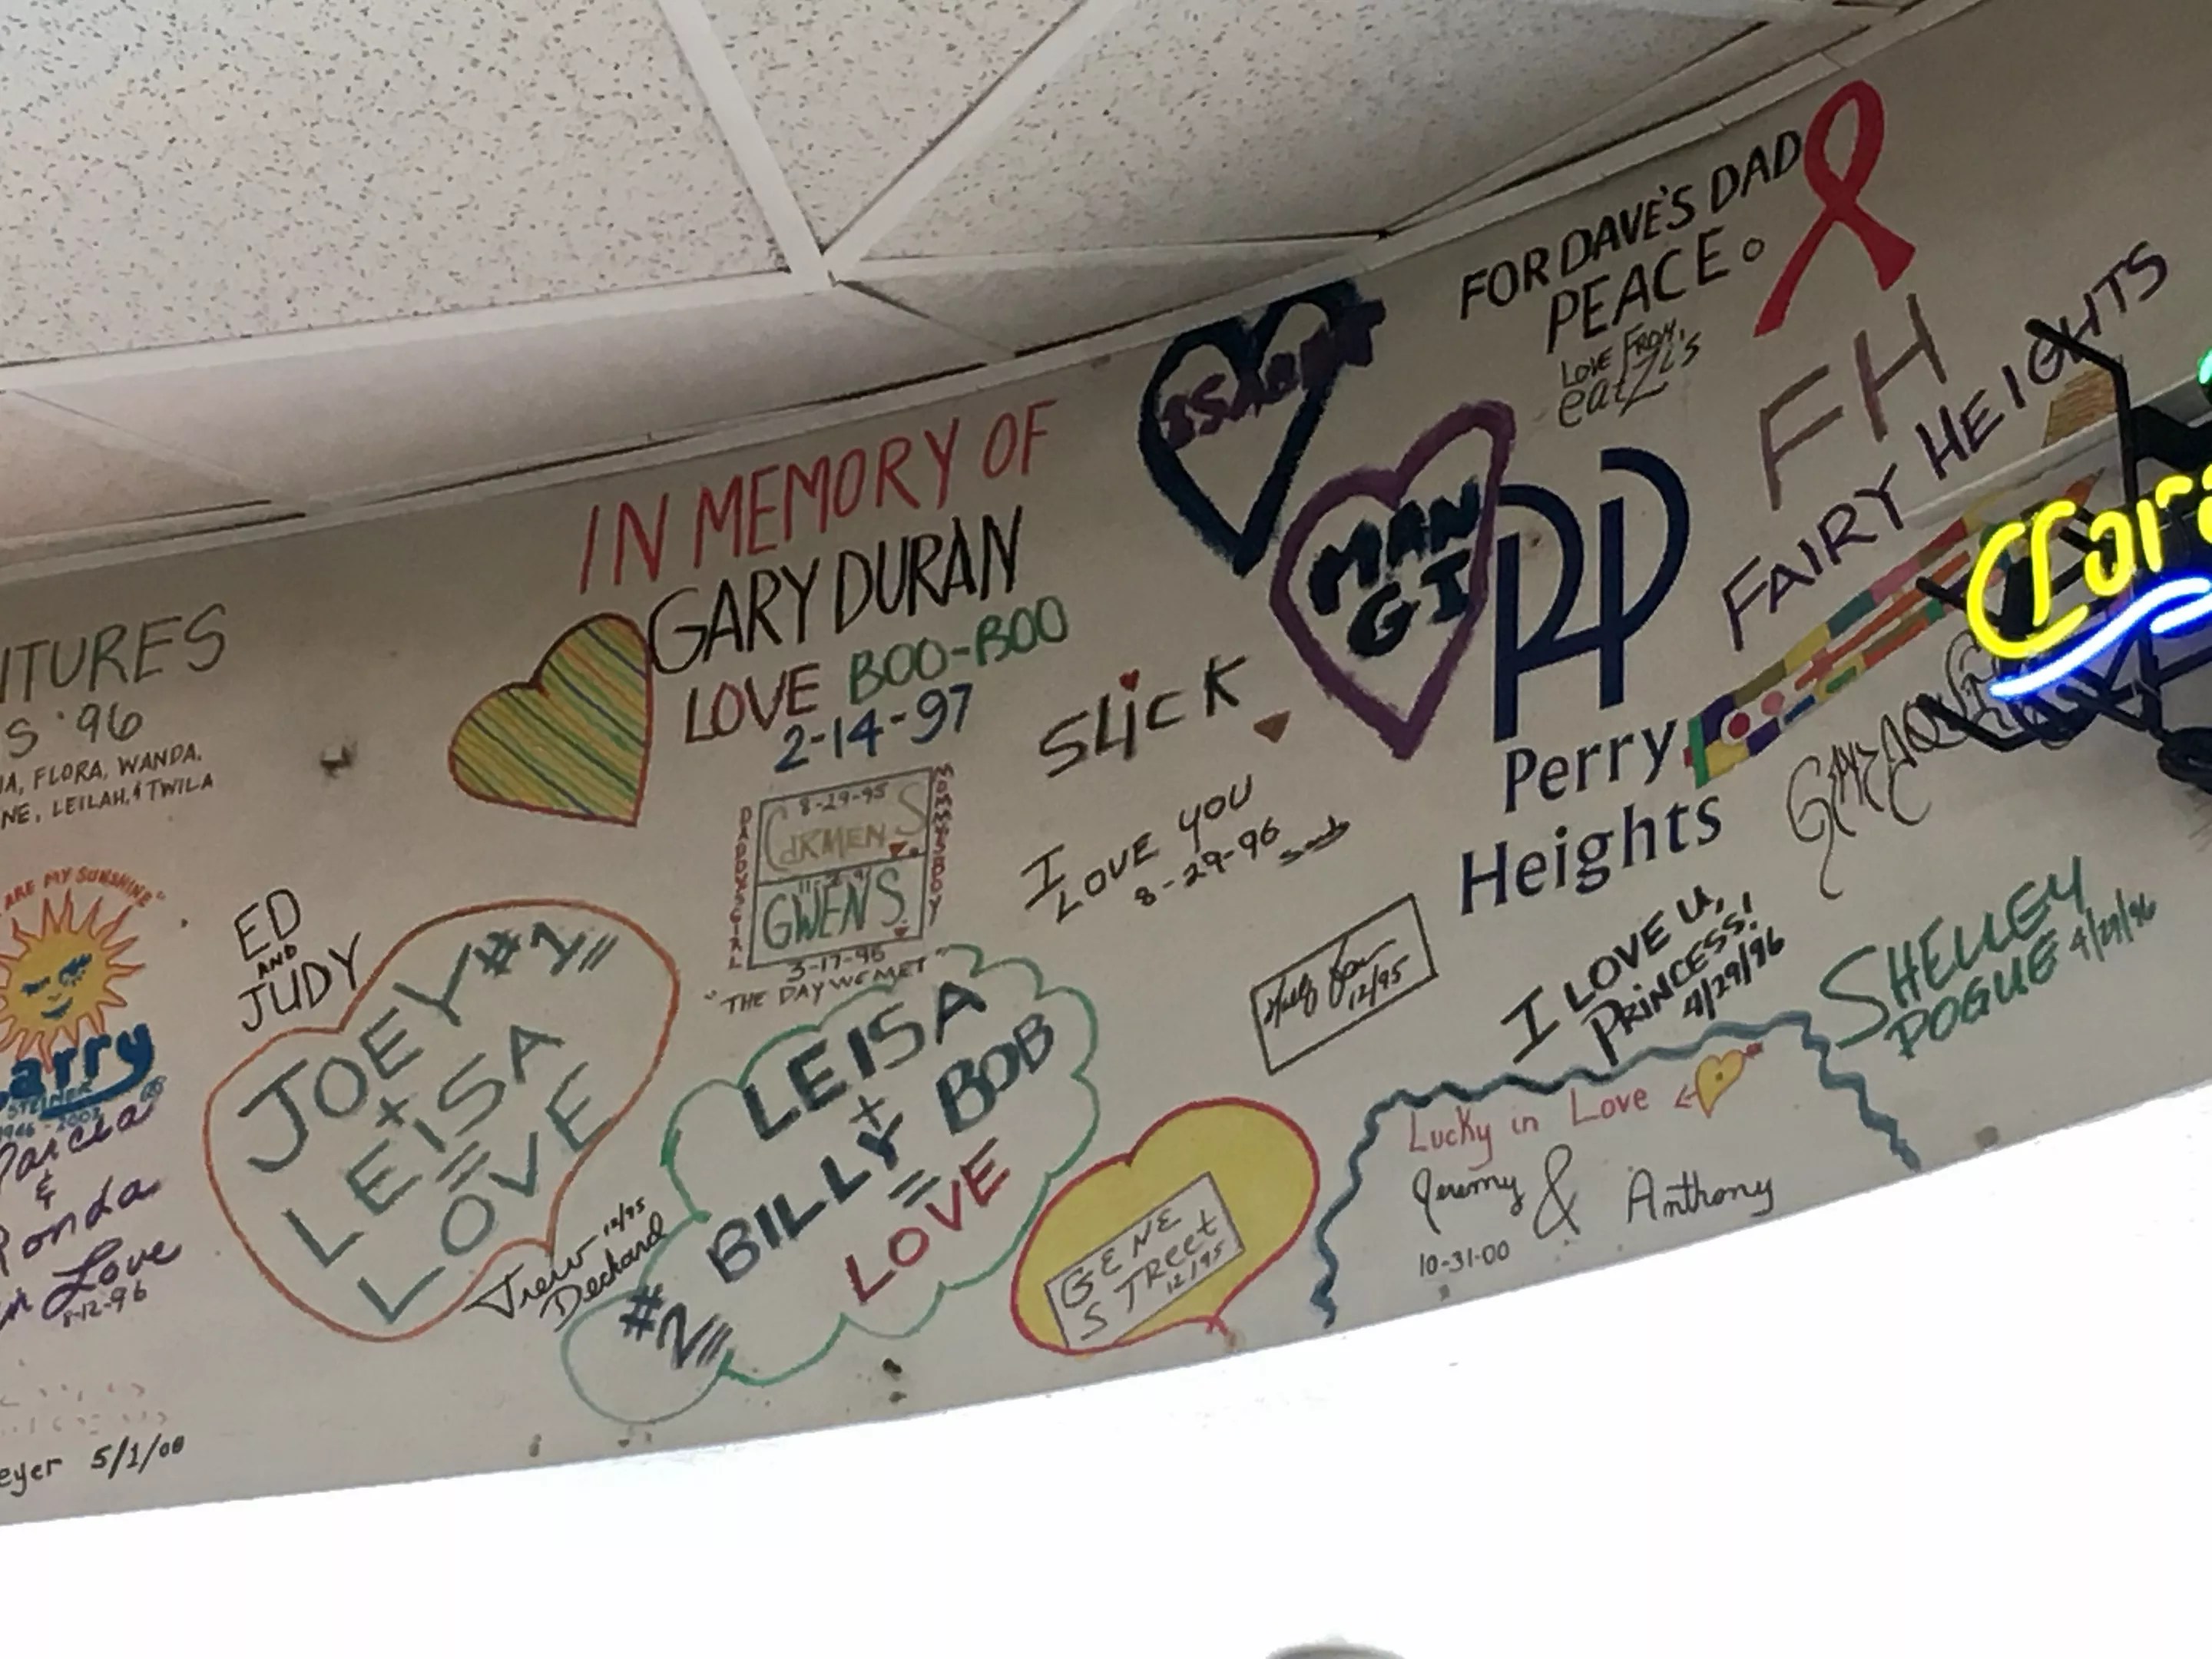 FOR DAVE'S DAD
PEACE.
LOVE FROM,
eatZi's
FH
FAIRY HEIGHTS
MAN
GI
Perry
Heights
IN MEMORY OF
GARY DURAN
LOVE BOO-BOO
2-14-97
8-29-95
CARMEN S
GWEN S
3-17-95
"THE DAY WE MET"
SLicK
I
LOVE YOU
8-29-96
ITURES
S '96
A, FLORA, WANDA,
NE, LEILAH, & TWILA
ARE MY SUNSHINE"
arry
STEINER
1946-2003
&
Ronda
in Love
8-12-96
eyer 5/1/00
ED
AND
JUDY
JOEY #1
+
LEISA
=
LOVE
Trew 12/95
Dechard
LEISA
+
BILLY BOB
=
LOVE
#2
GENE
STREET
12/95
12/95
I LOVE U,
PRINCESS!
4/29/96
SHELLEY
POGUE 4/29/96
Lucky in Love
Jeremy & Anthony
10-31-00